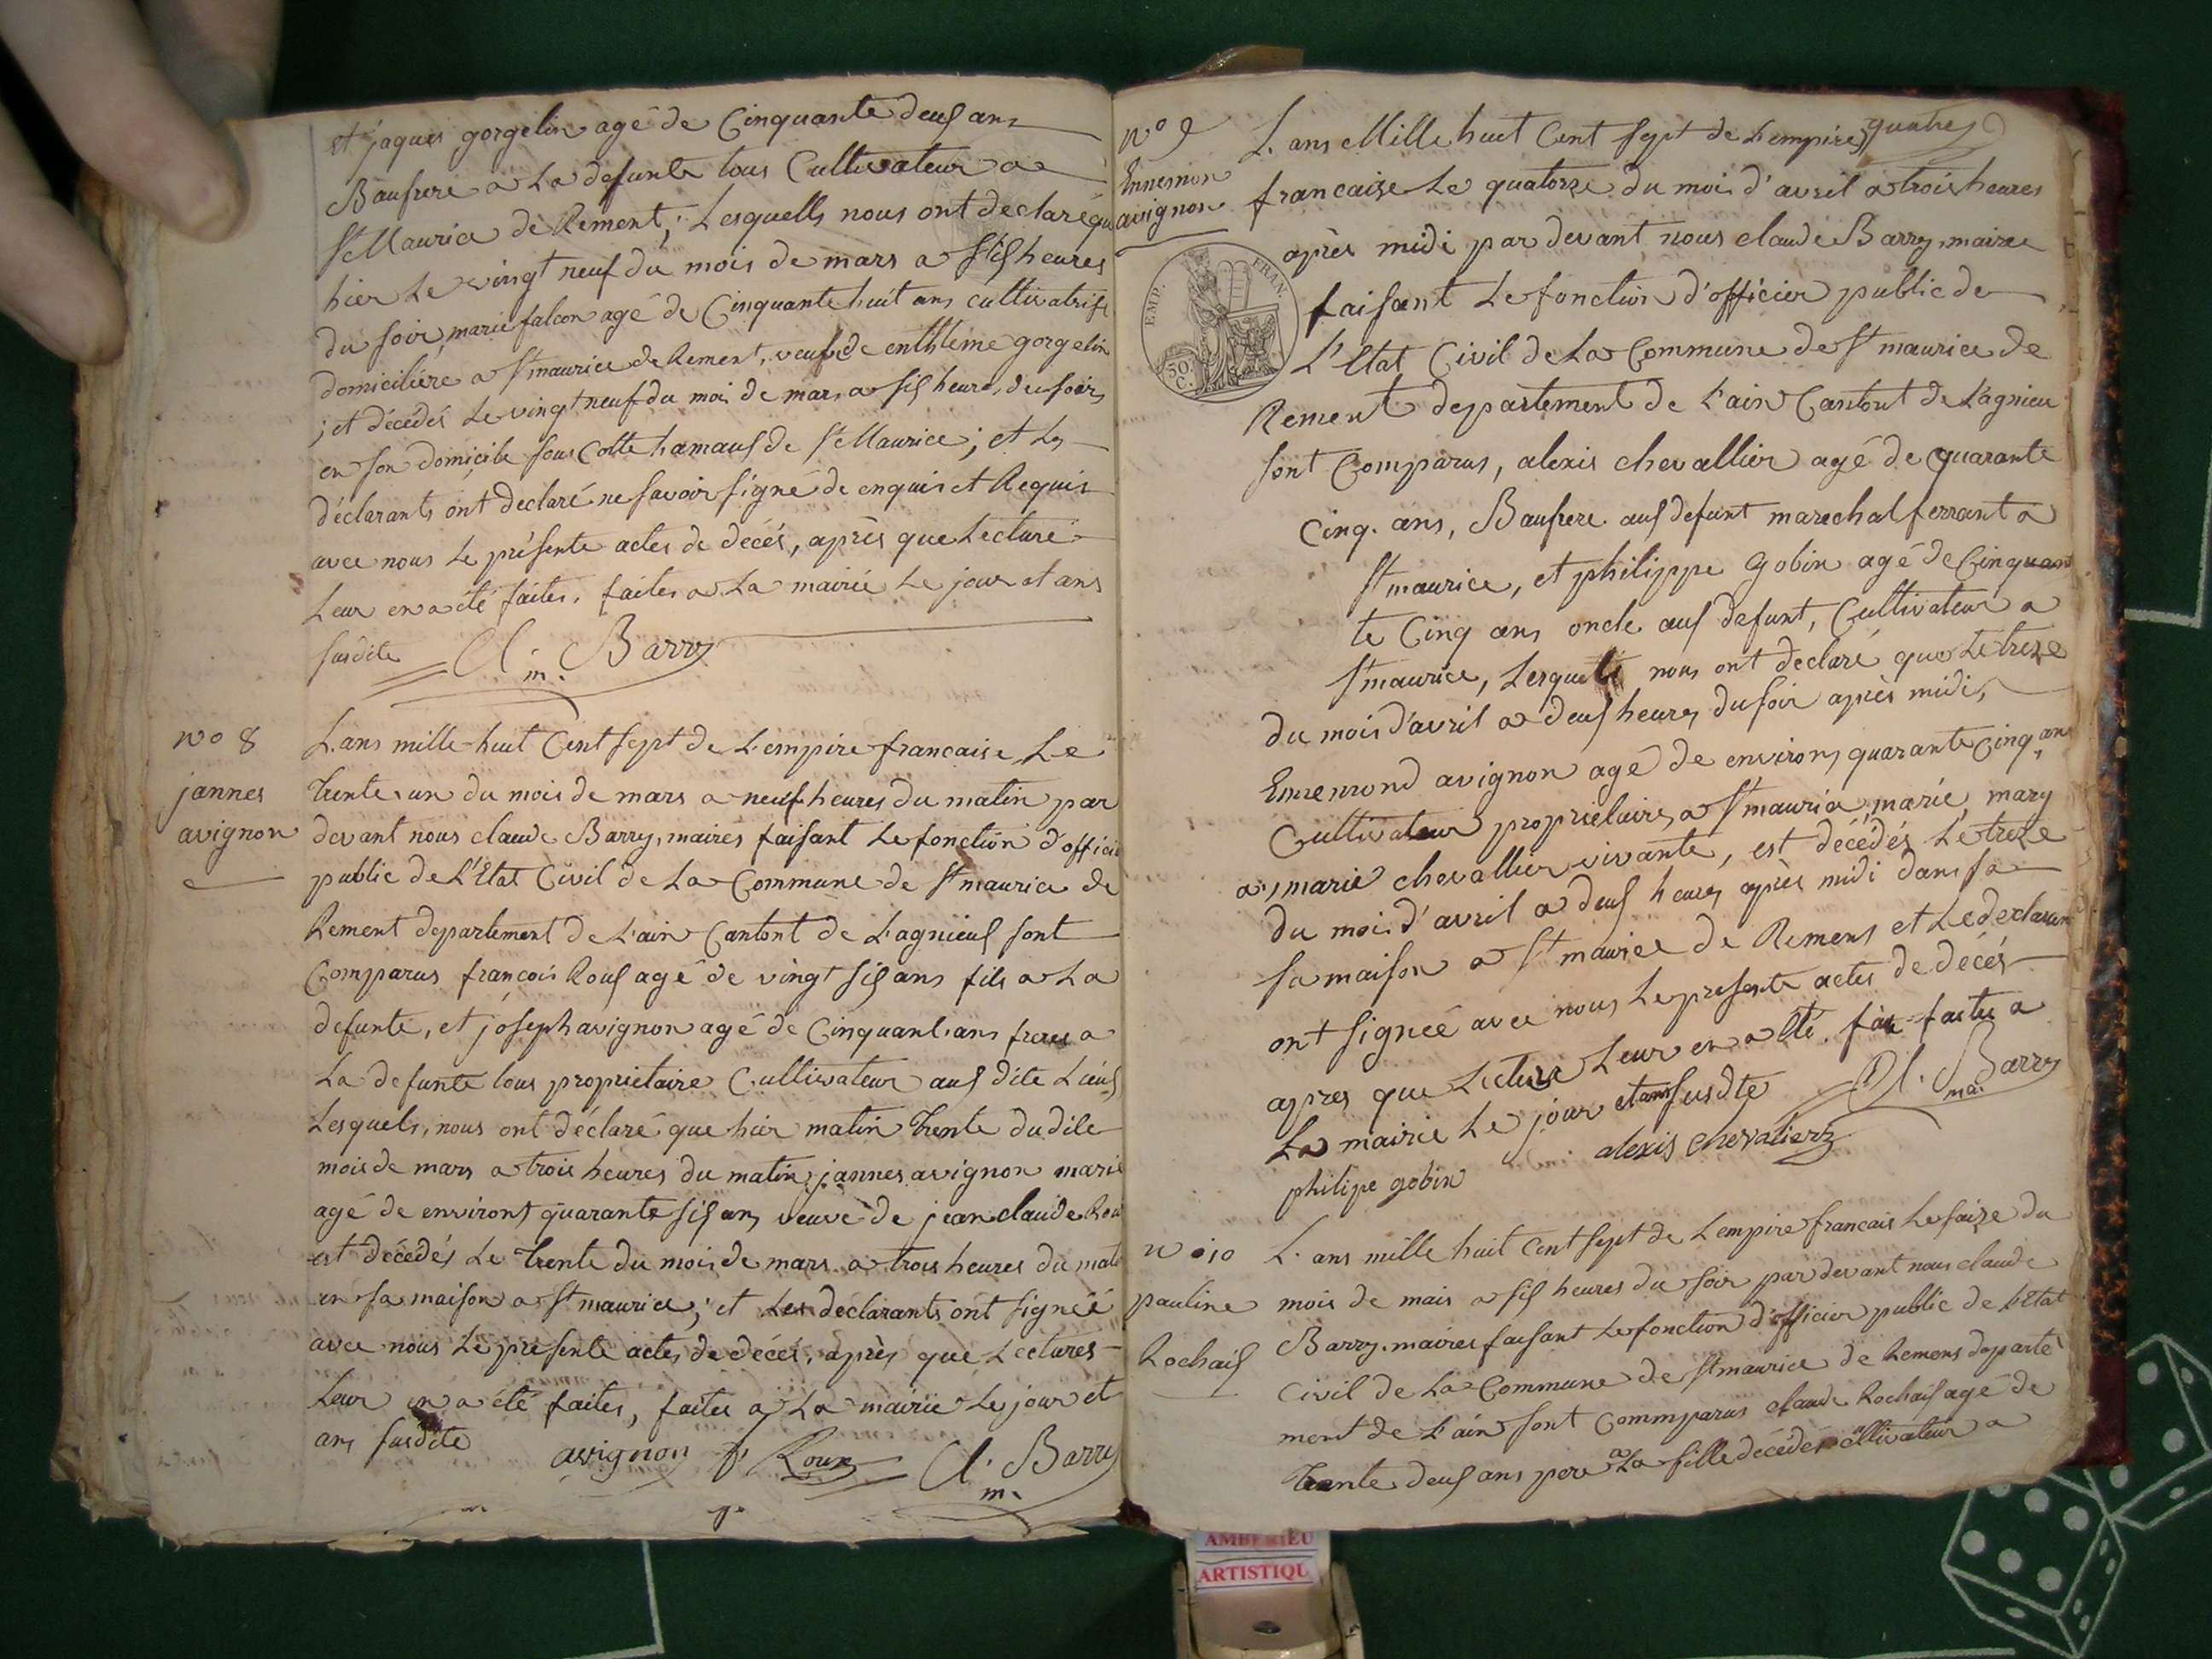 et jaques gorgelin agé de Cinquante deux ans
Baufrere a La defunte tous Cultivateur a
St Maurice de Rement; Lesquells nous ont declaré que
hier Le vingt neuf du mois de mars a six heures
du soir marie falcon agé de Cinquante huit ans cultivatrise
domiciliére a St maurice de Rement, veufe de enthleme gorgelin
; et décédés Le vingt neuf du moi de mars a six heures du soir
en son domicile sous Cotte hamaux de St Maurice; et Les
déclarants ont declaré ne savoir signé de enquis et Requis
avec nous Le présente actes de décés, après que Lecture
Leur en a été faites, faites a La mairie Le jour et ans
susdite Cl. Barry
m.
No 8
jannes
avignon
L. ans mille huit Cent sept de L'empire francaise Le
trente un du mois de mars a neuf heures du matin par
devant nous claude Barry, maires faisant Le fonction d'officie
public de L'Etat Civil de La Commune de St maurice de
Rement departement de L'ain Cantont de L'agnieux sont
Comparus françois Roux agé de vingt six ans fils a La
defunte, et joseph avignon agé de Cinquant ans freres a
La defunte tous proprietaire Cultivateur aux dite Lieux
Lesquels, nous ont déclaré que hier matin trente dudite
mois de mars a trois heures du matin jannes avignon marie
agé de environt quarante six ans veuve de jean claude Rou
est décédés Le trente du mois de mars a trois heures du mati
en sa maison a St maurice; et Les déclarants ont signéé
avec nous Le presente actes de décés, après que Lectures
Leur en a été faites, faites a La mairie Le jour et
ans susdite avignon f. Roux Cl. Barry
m.
No 9
Ennemon
avignon
EMP. FRAN.
50 C.
L. ans Mille huit Cent sept de L'empire quatres
francaise Le quatorze du moi d'avril a trois heures
après midi par devant nous claude Barry, maire
faisant Le fonction d'officier public de
L'Etat Civil de La Commune de St maurice de
Rement departement de L'ain Cantont de L'agnieu
sont Comparus, alexis chevallier agé de quarante
Cinq. ans, Baufrere aux defunt marechal ferrant a
St maurice, et philippe gobin agé de Cinquan
te Cinq ans oncle aux defunt, Cultivateur a
St maurice, Lesquels nous ont declaré que Le treze
du mois d'avril a deux heures du soir après midi,
Ennemond avignon agé de environs quarante Cinq ans
Cultivateur proprietaire a St maurice, marié, mary
a marie chevallier vivante, est décédés Le treze
du moi d'avril a deux heures après midi dans sa
sa maison a St maurice de Remens et Le declarant
ont signéé avec nous Le presente actes de décés
apres que Lecture Leur en a été fait faites a
La mairie Le jour et ans susdte Cl. Barry
ma.
alexis chevalier
philipe gobin
No 10
pauline
Rochaix
L. ans mille huit Cent sept de L'empire francais Le saize du
mois de mais a six heures du soir par devant nous claude
Barry, maires faisant Le fonction d'officier public de L'Etat
Civil de La Commune de St maurice de Remens departe
ment de L'ain sont Commparus claude Rochaix agé de
trente deux ans pere a La fille décédés cultivateur a
AMBERIEU
ARTISTIQU